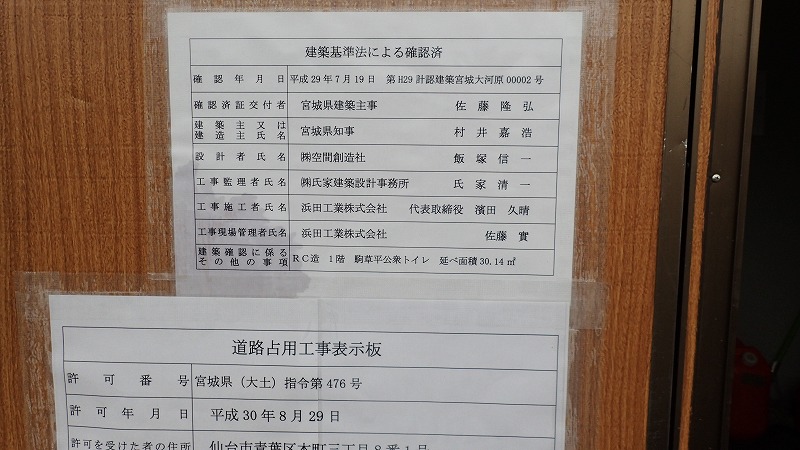 建築基準法による確認済
確認年月日 平成29年7月19日 第H29計認建築宮城大河原00002号
確認済証交付者 宮城県建築主事 佐藤隆弘
建築主又は
建造主氏名 宮城県知事 村井嘉浩
設計者氏名 ㈱空間創造社 飯塚信一
工事監理者氏名 ㈱氏家建築設計事務所 氏家清一
工事施工者氏名 浜田工業株式会社 代表取締役 濱田久晴
工事現場管理者氏名 浜田工業株式会社 佐藤實
建築確認に係る
その他の事項 RC造 1階 駒草平公衆トイレ 延べ面積30.14㎡
道路占用工事表示板
許可番号 宮城県（大土）指令第476号
許可年月日 平成30年8月29日
許可を受けた者の住所 仙台市青葉区本町三丁目8番1号